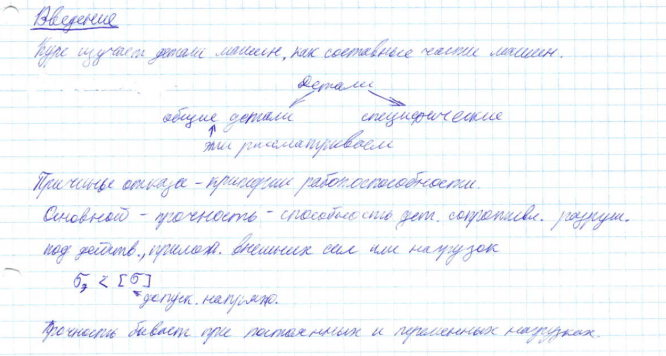 Введение
Курс изучает детали машин, как составные части машин.
детали
общие детали специфические
эти рассматриваем
Причины отказа - критерии работоспособности.
Основной - прочность - способность дет. сопротивл. разруш.
под действ., прилож. внешних сил или нагрузок
σэ < [σ]
допуск. напряж.
Прочность бывает при постоянных и переменных нагрузках.